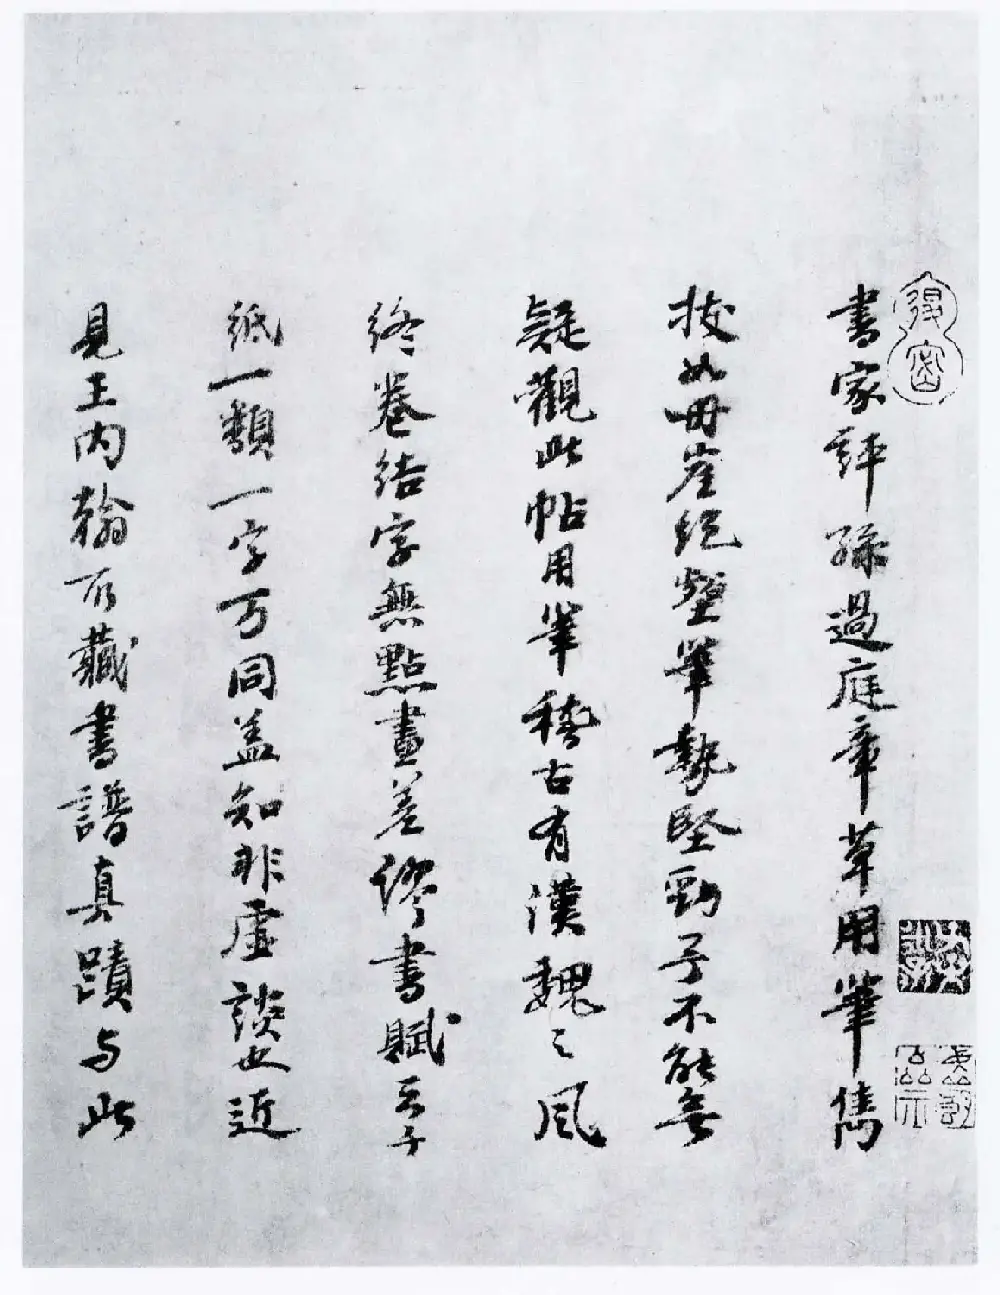 書家評孫過庭章草用筆雋
拔如丹崖絕壑筆勢堅勁予不能無
疑觀此帖用筆稽古有漢魏之風
終卷結字無點畫差繆書賦云千
紙一類一字万同盖知非虛談也近
見王內翰所藏書譜真蹟与此